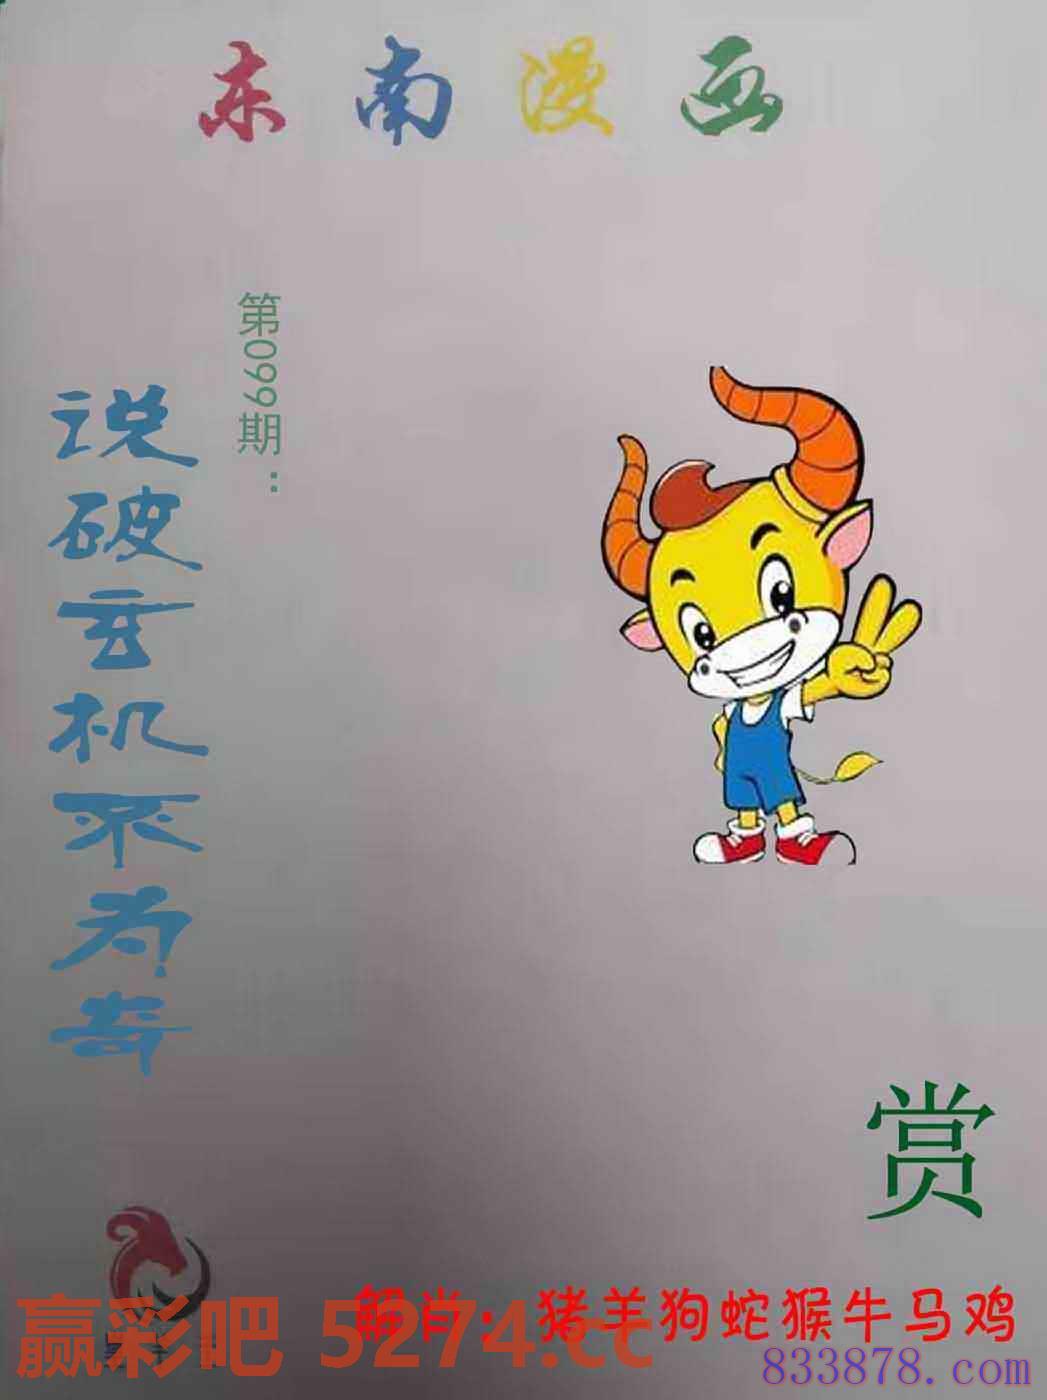 东南漫画
第099期：
说破玄机不为奇
赏
解肖：猪羊狗蛇猴牛马鸡
赢彩吧 5274.cc
833878.com